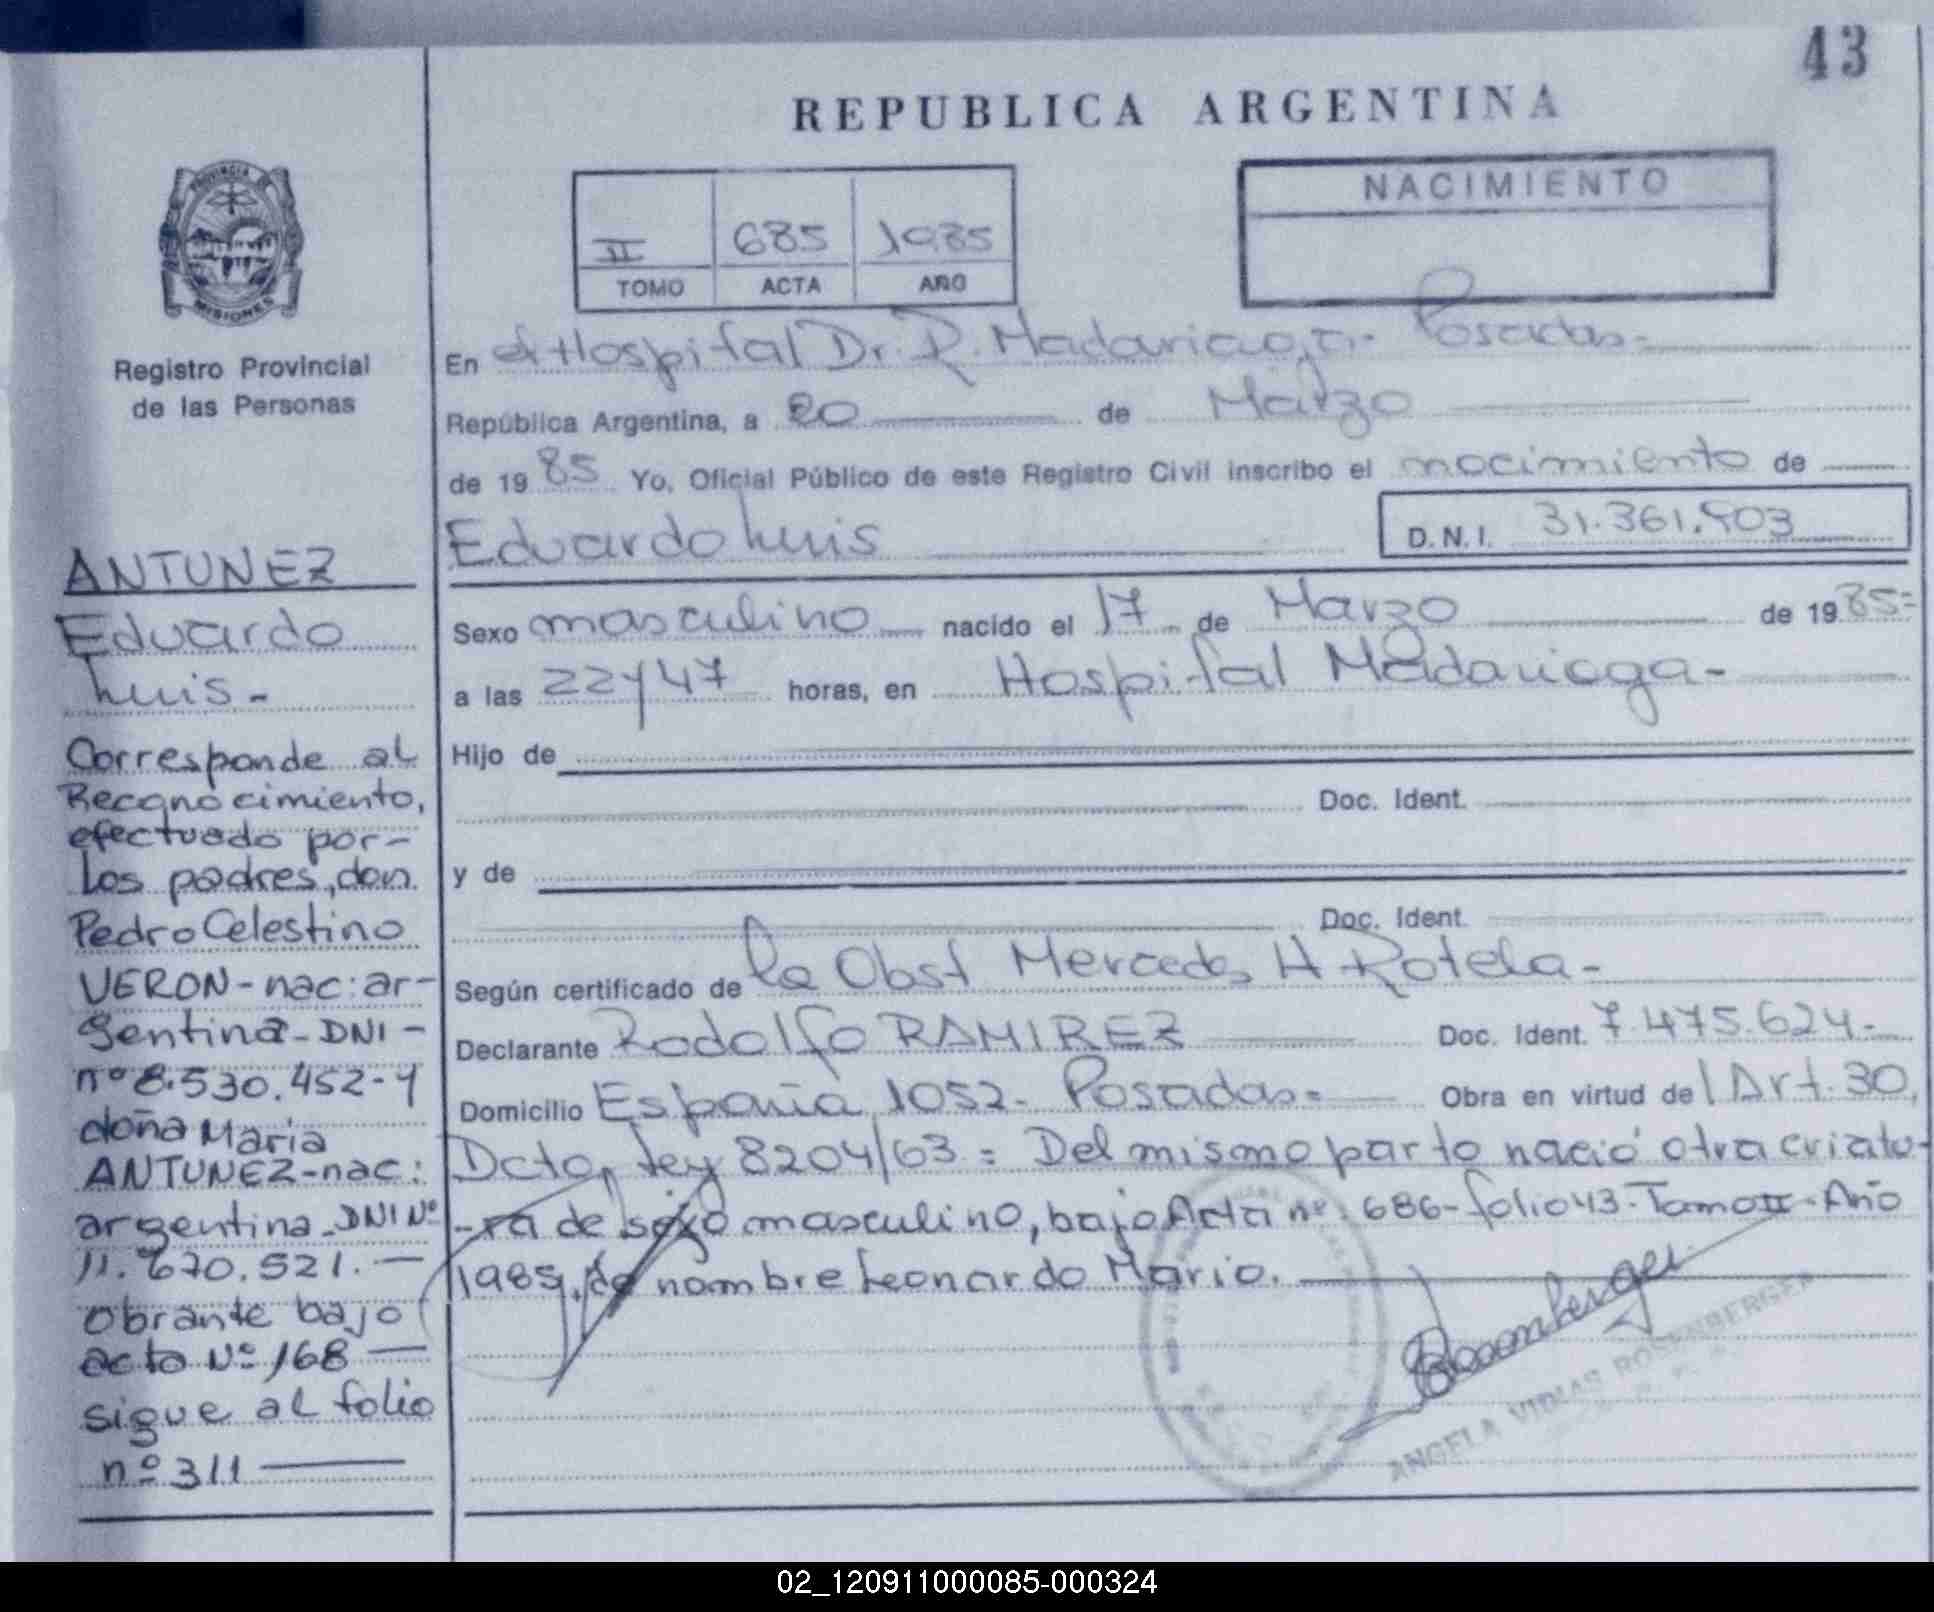 43
REPUBLICA ARGENTINA
NACIMIENTO
II 685 1985
TOMO ACTA AÑO
PROVINCIA DE
MISIONES
Registro Provincial
de las Personas
ANTUNEZ
Eduardo
Luis-
Corresponde al
Recono cimiento,
efectuado por-
los padres, don
Pedro Celestino
VERON-nac: ar-
gentina-DNI-
nº 8.530.452-y
doña Maria
ANTUNEZ-nac:
argentina-DNI Nº
11.670.521.-
Obrante bajo
acta Nº 168
sigue al folio
nº 311
En el Hospital Dr. R. Madariaga- Posadas-
República Argentina, a 20 de Marzo
de 19 85 Yo, Oficial Público de este Registro Civil inscribo el nacimiento de
Eduardo Luis D.N.I. 31.361.903
Sexo masculino nacido el 17 de Marzo de 19 85=
a las 22y47 horas, en Hospital Madariaga-
Hijo de
Doc. Ident.
y de
Doc. Ident.
Según certificado de la Obst Mercedes H Rotela-
Declarante Rodolfo RAMIREZ Doc. Ident. 7.475.624.-
Domicilio España 1052- Posadas= Obra en virtud del Art. 30,
Dcto, Ley 8204/63 = Del mismo parto nació otra criatu-
-ra de sexo masculino, bajo Acta nº 686-folio 43-Tomo II-Año
1985, de nombre Leonardo Mario.
Rosemberger
ANGELA VIDIAS ROSENBERGER
02_120911000085-000324